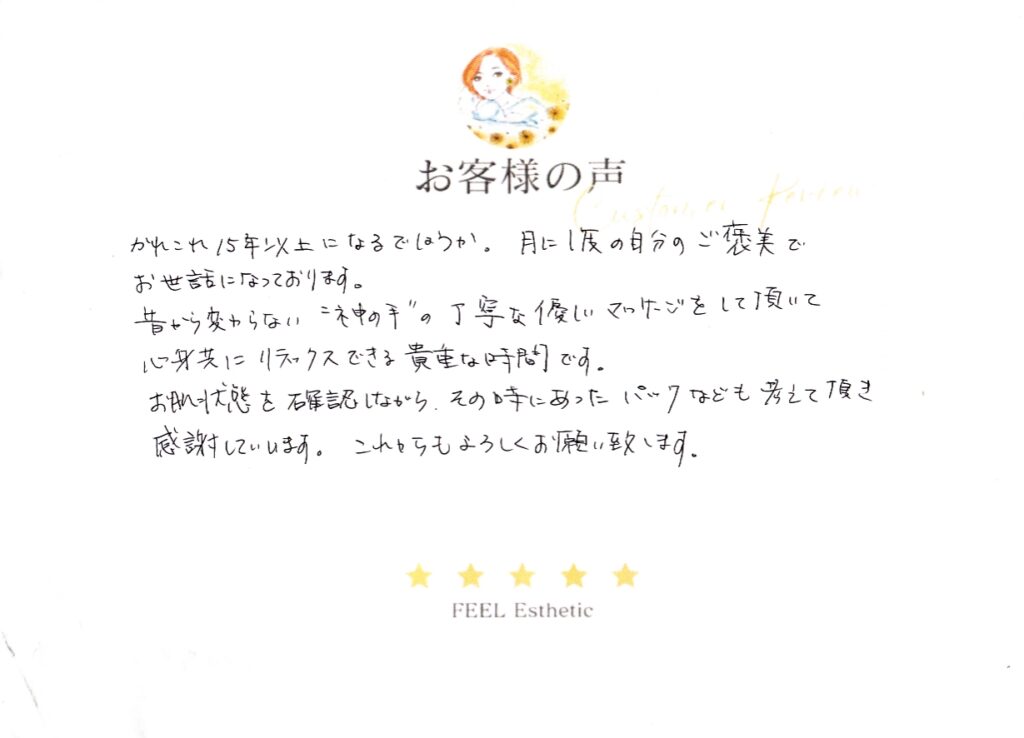 お客様の声
Customer Review
かれこれ15年以上になるでしょうか。 月に1度の自分のご褒美で
お世話になっております。
昔から変わらない “神の手”の丁寧な優しいマッサージをして頂いて
心身共にリラックスできる貴重な時間です。
お肌状態を確認しながら、その時にあったパックなども考えて頂き
感謝しています。 これからもよろしくお願い致します。
FEEL Esthetic